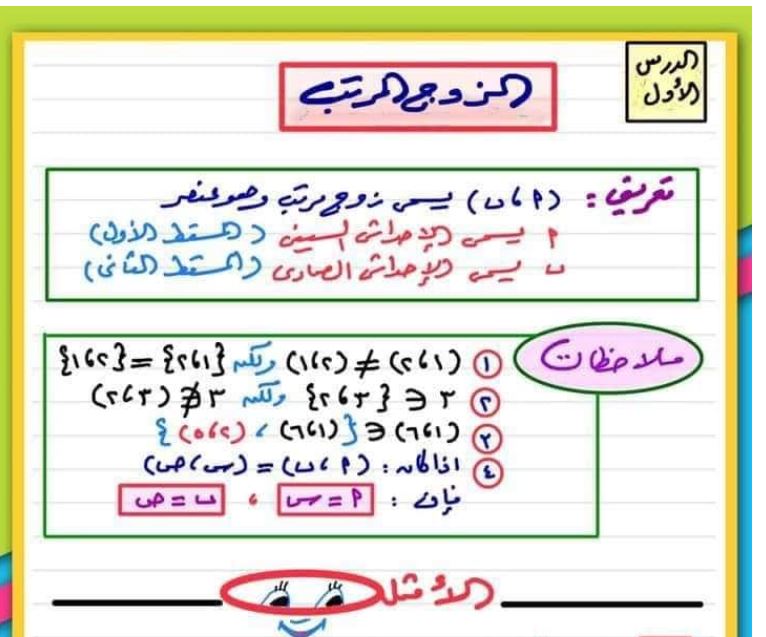 الدرس
الأول
الزوج المرتب
تعريف: (٢، ب) يسمى زوج مرتب وهو عنصر
٢ يسمى الإحداثى السينى (المسقط الأول)
ب يسمى الإحداثى الصادى (المسقط الثانى)
ملاحظات
① (١، ٢) ≠ (٢، ١) ولكن {١، ٢} = {٢، ١}
② ٣ ∈ {٣، ٢} ولكن ٣ ∉ (٣، ٢)
③ (١، ٦) ∈ {(١، ٦)، (٢، ٥)}
④ اذا كان: (٢، ب) = (س، ص)
فإن: ٢ = س ، ب = ص
الأمثلة